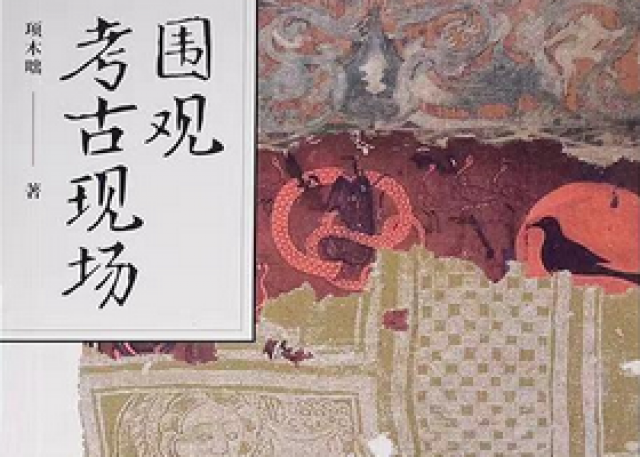 围观
考古现场
项木咄 著